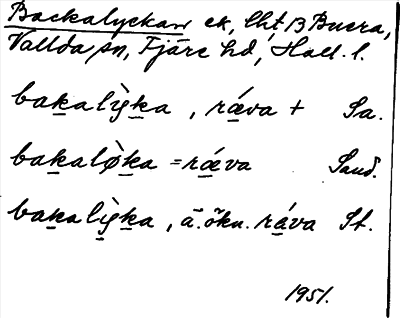 Backalyckan ek, lht B Buera,
Vallda sn, Fjäre hd, Hall. l.
bakalỳka , ráva + Sa.
bakalø̀ka = ráva Sand.
bakalỳka , ä. ökn. ráva St.
1951.